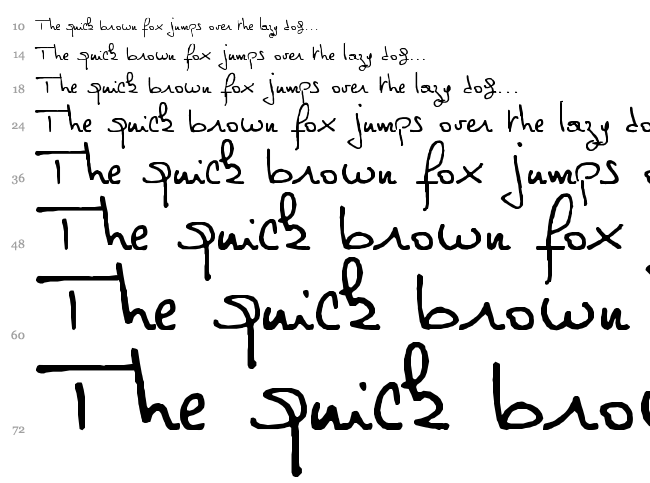 10 The quick brown fox jumps over the lazy dog...
14 The quick brown fox jumps over the lazy dog...
18 The quick brown fox jumps over the lazy dog...
24 The quick brown fox jumps over the lazy do
36 The quick brown fox jumps
48 The quick brown fox
60 The quick brown
72 The quick bro